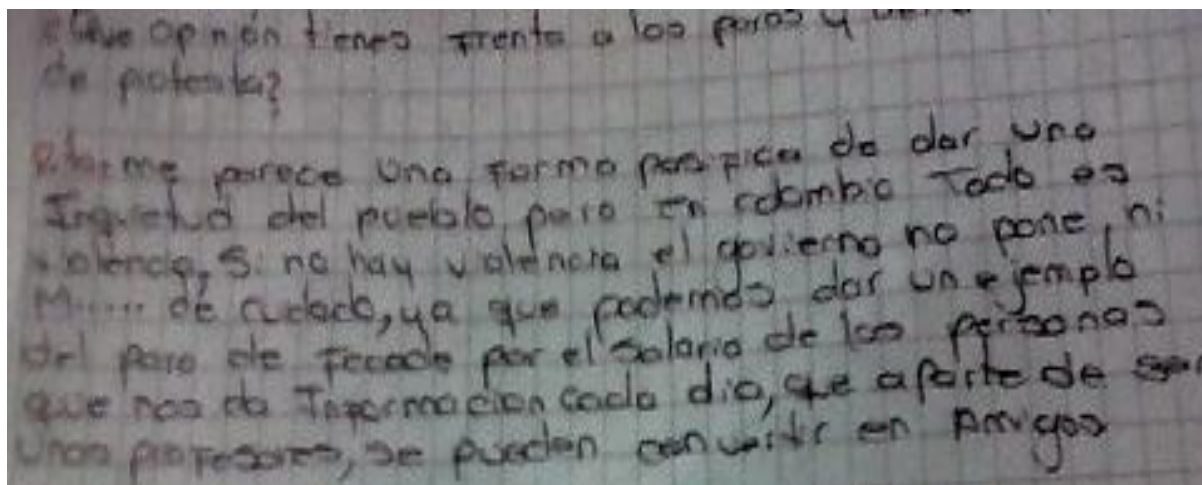 Que opinón tienes frente a los paros y
de protesta?
me parece una forma pasifica de dar una
Inquietud del pueblo, pero en colombia Todo es
violencia, si no hay violencia el govierno no pone ni
M...... de cuidado, ya que podemos dar un ejemplo
del paro de Fecode por el salario de las personas
que nos da Informacion cada dia, que aparte de ser
unos profesores, se pueden convertir en Amigos